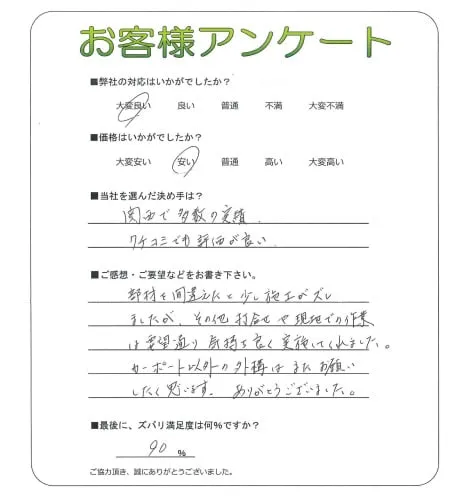 お客様アンケート
■弊社の対応はいかがでしたか?
大変良い 良い 普通 不満 大変不満
■価格はいかがでしたか?
大変安い 安い 普通 高い 大変高い
■当社を選んだ決め手は?
関西で多数の実績.
クチコミでも評価が良い.
■ご感想・ご要望などをお書き下さい。
部材を間違えたと少し施工がズレ
ましたが、その他 打合せや現地での作業
は要望通り気持ち良く実施してくれました。
カーポート以外の外構はまたお願い
したく思います。ありがとうございました。
■最後に、ズバリ満足度は何%ですか?
90 %
ご協力頂き、誠にありがとうございました。